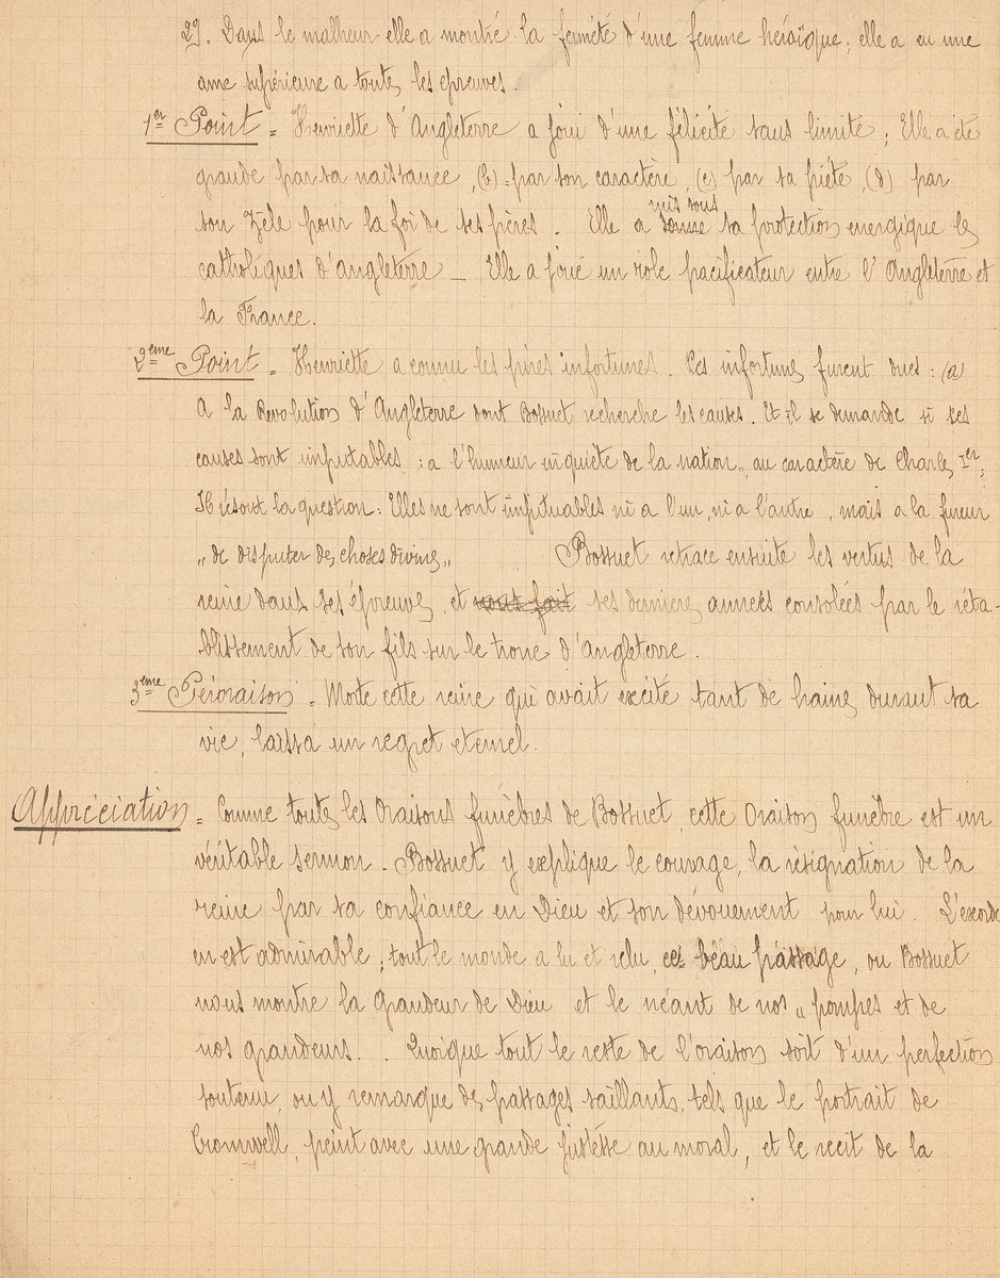 2º. Dans le malheur elle a montré la fermeté d'une femme heroïque; elle a eu une
ame supérieure a toutes les epreuves.
1er Point = Henriette d'Angleterre a joui d'une félicité sans limite; Elle a été
grande par sa naissance, (b) par son caractère, (c) par sa piété, (d) par
son Zèle pour la foi de ses pères. Elle a mis sous sa protection energique les
catholiques d'angleterre _ Elle a joué un role pacificateur entre l'Angleterre et
la France.
2ème Point = Henriette a connu les pires infortunes. Ces infortunes furent dues : (a)
A la Revolution d'Angleterre dont Bossuet recherche les causes. Et il se demande si ses
causes sont imputables : a l'humeur inquiéte de la nation, au caractère de Charles Ier;
Il résout la question : Elles ne sont imputuables ni a l'un, ni a l'autre, mais a la fureur
„ de disputer des choses divines „ Bossuet retrace ensuite les vertus de la
reine dans ses épreuves, et nous fait ses dernieres années consolées par le réta-
blissement de son fils sur le trone d'angleterre.
3ème Péroraison = Morte cette reine qui avait excité tant de haines durant sa
vie, laissa un regret eternel.
Appréciation = Comme toutes les Oraisons funèbres de Bossuet, cette Oraison funèbre est un
véritable sermon. Bossuet y explique le courage, la résignation de la
reine par sa confiance en Dieu et son dévouement pour lui. L'exorde
en est admirable; tout le monde a lu et relu, ces beau passage, ou Bossuet
nous montre la Grandeur de Dieu et le néant de nos „ pompes et de
nos grandeurs. . Quoique tout le reste de l'oraison soit d'un perfection
soutenu, on y remarque des passages saillants, tels que le portrait de
Cromwell, peint avec une grande justesse au moral, et le recit de la